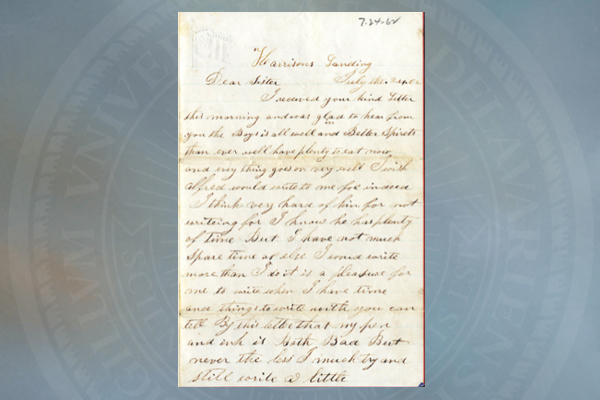 7-24-62
Harrisons Landing
Dear Sister July the 24 62
I received your kind Letter
this morning and was glad to hear from
you the Boys is all well and Better Spirets
than ever well have plenty to eat now
and evry thing goes on very well I wish
alfred would write to me for indeed
I think very hard of him for not
writeing for I know he has plenty
of time But I have not much
Spare time or else I would write
more than I do it is a pleasure for
me to write when I have time
and things to write with you can
tell By this letter that my pen
and ink is both Bad But
never the less I much try and
still write a little